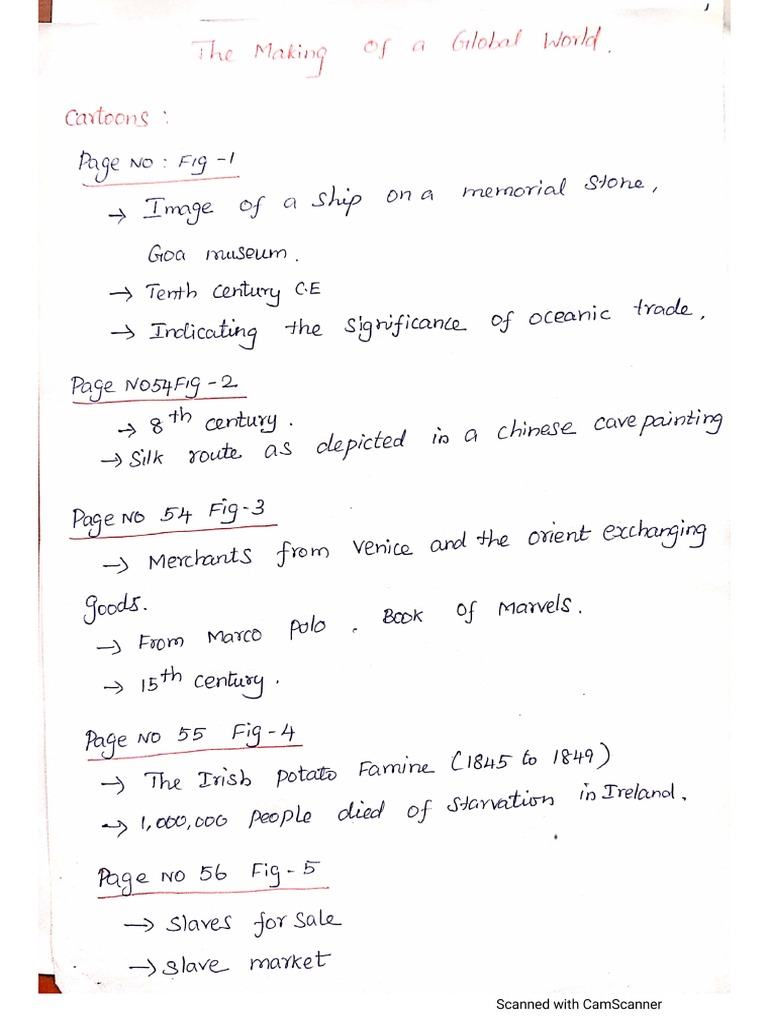 The Making of a Global World.
Cartoons :
Page NO : Fig -1
→ Image of a ship on a memorial stone,
Goa museum.
→ Tenth century C.E
→ Indicating the significance of oceanic trade.
Page NO54Fig -2
→ 8th century.
→ Silk route as depicted in a chinese cave painting
Page NO 54 Fig-3
→ Merchants from venice and the orient exchanging
goods.
→ From Marco Polo . Book of Marvels.
→ 15th century.
Page NO 55 Fig-4
→ The Irish potato Famine (1845 to 1849)
→ 1,000,000 people died of starvation in Ireland.
Page NO 56 Fig-5
→ slaves for sale
→ slave market
Scanned with CamScanner